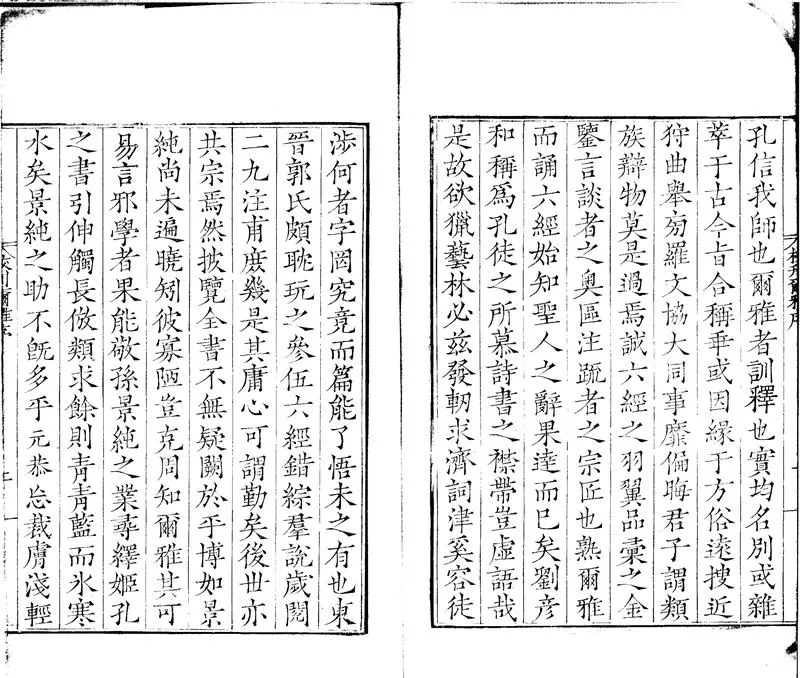 孔信我師也爾雅者訓釋也實均名別或雜
萃于古今旨合稱乖或因緣于方俗遠搜近
狩曲舉旁羅文協大同事靡偏晦君子謂類
族辯物莫是過焉誠六經之羽翼品彙之金
鑒言談者之奧區注疏者之宗匠也熟爾雅
而誦六經始知聖人之辭果達而已矣劉彥
和稱爲孔徒之所慕詩書之襟帶豈虛語哉
是故欲獵藝林必茲發軔求濟詞津奚容徒
涉何者字罔究竟而篇能了悟未之有也東
晉郭氏頗耽玩之參伍六經錯綜羣說歲閱
二九注甫庶幾是其庸心可謂勤矣後世亦
共宗焉然披覽全書不無疑闕於乎博如景
純尚未遍曉矧彼寡陋豈克周知爾雅其可
易言邪學者果能敬孫景純之業尋繹姬孔
之書引伸觸長倣類求餘則青青藍而氷寒
水矣景純之助不既多乎元恭忘裁膚淺輕